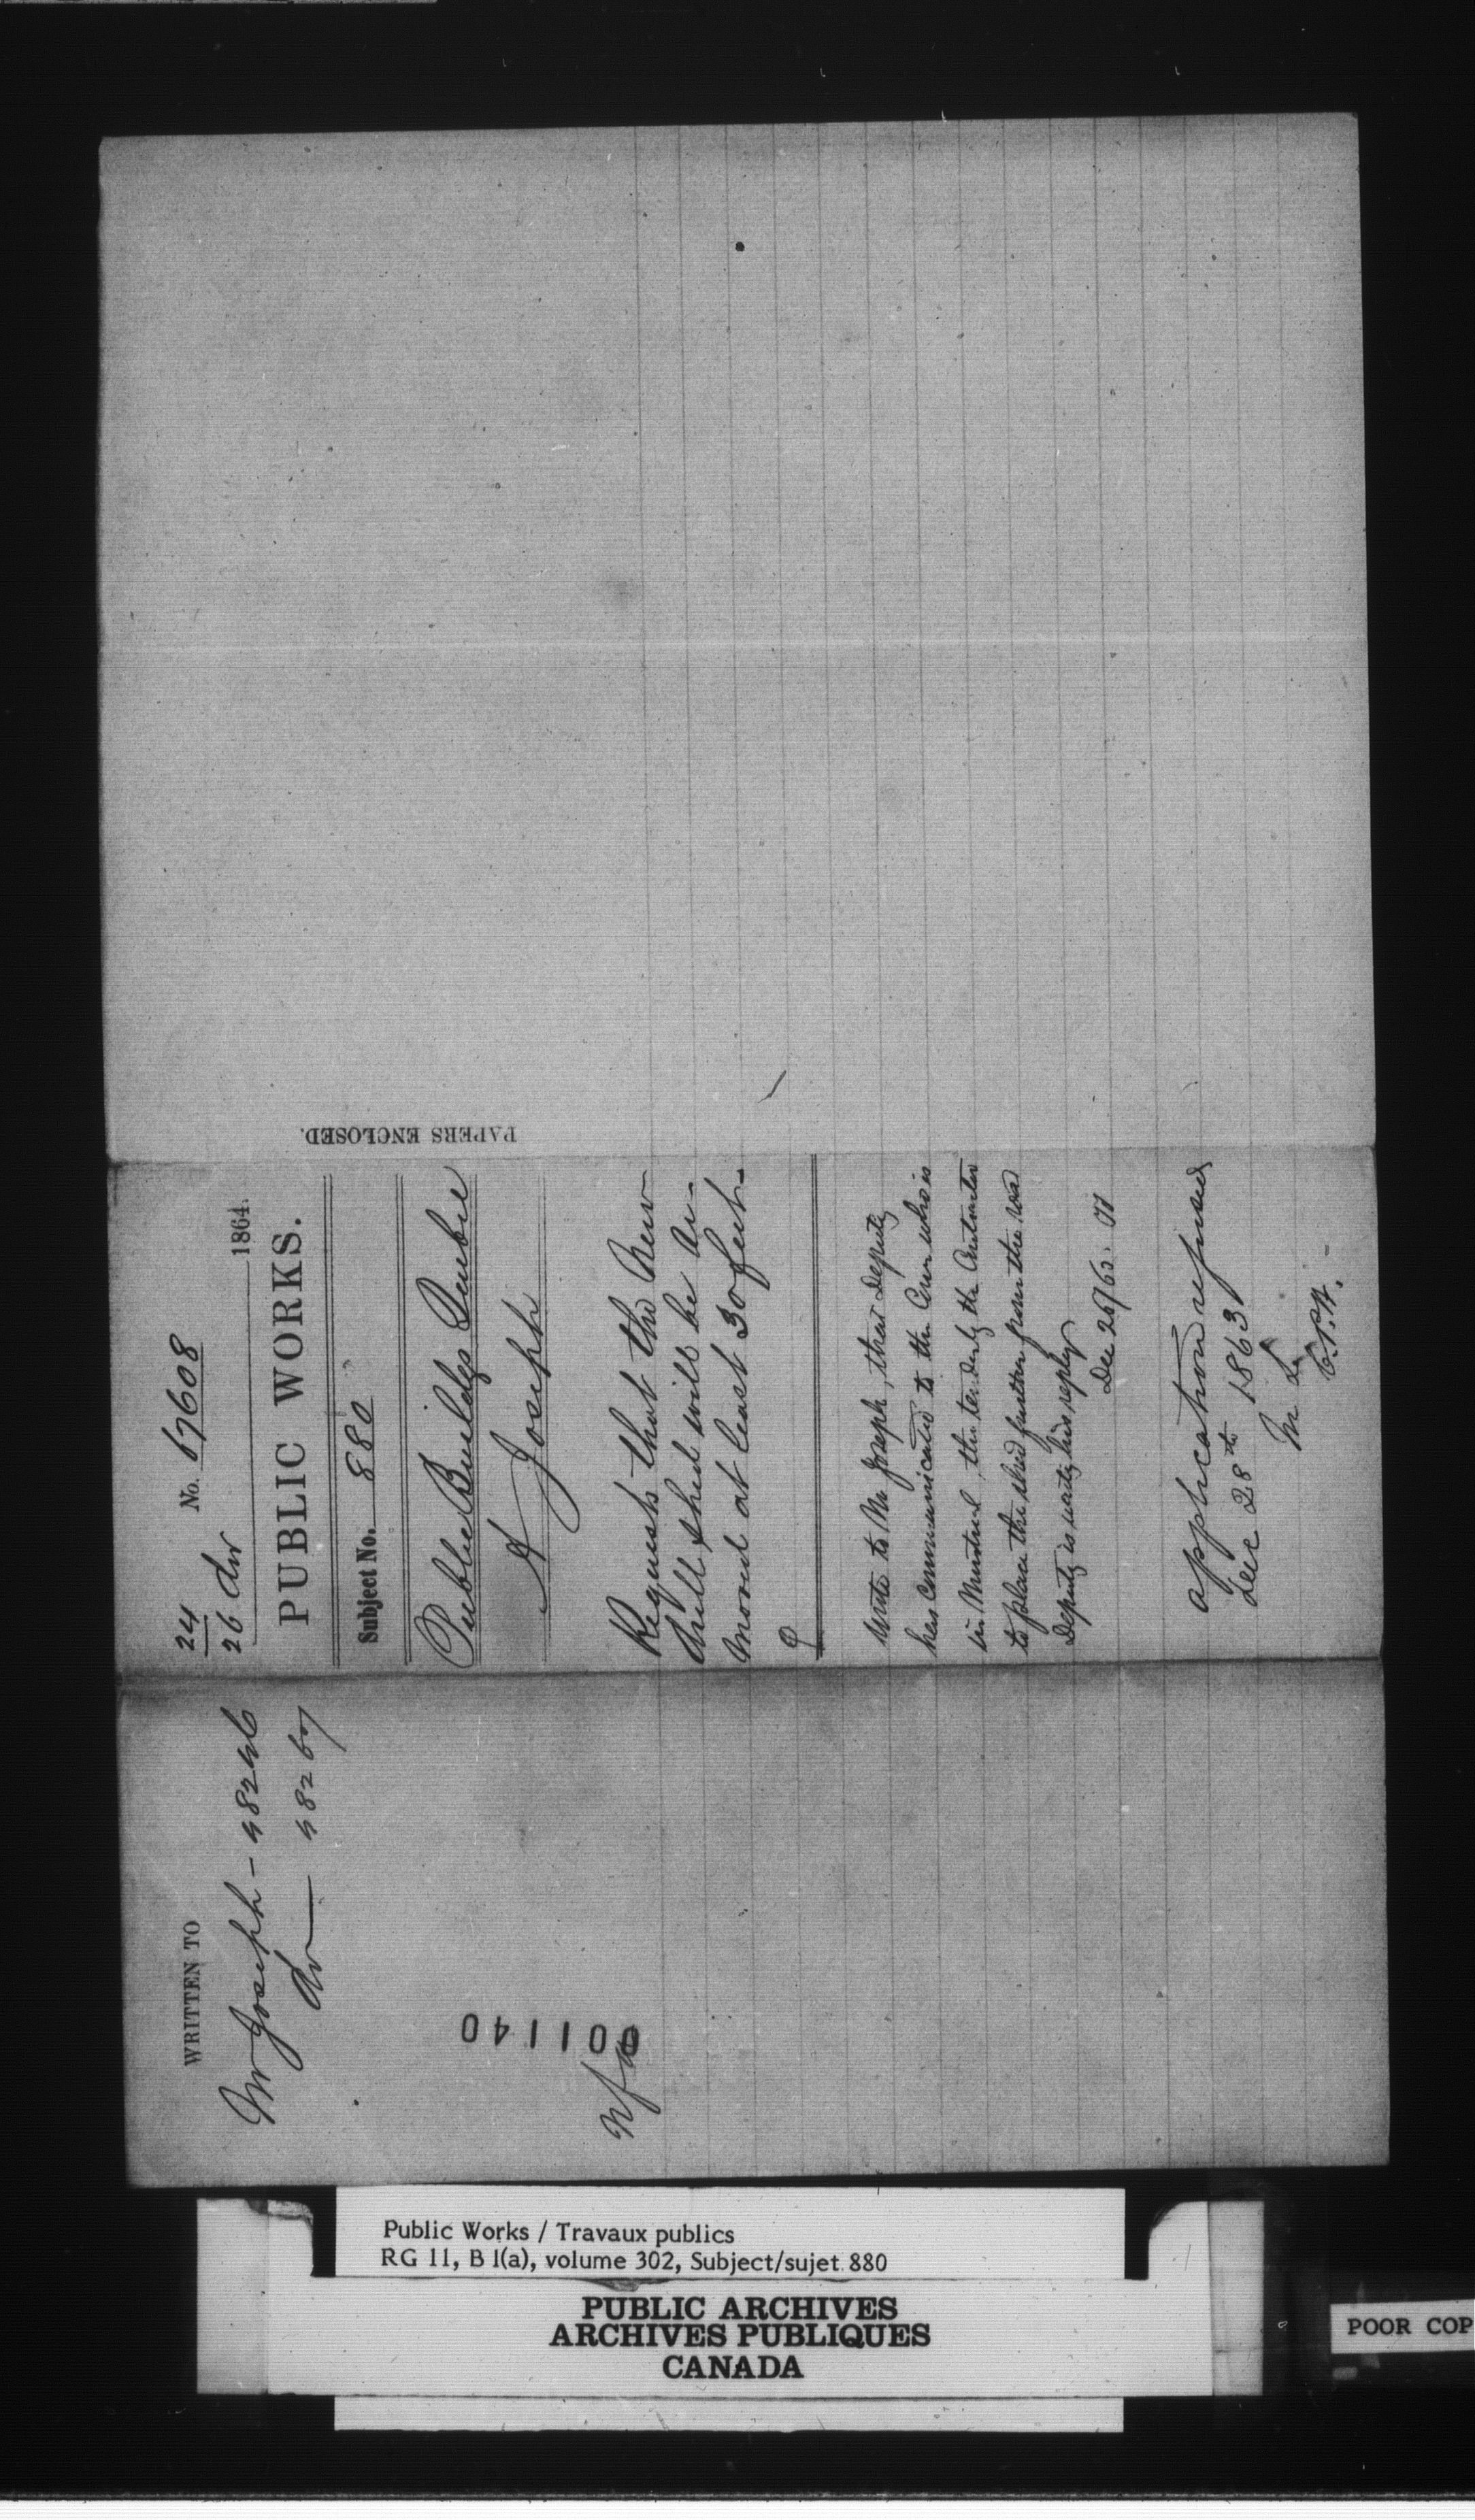 24
26 Dec
No. 67608
1864.
PUBLIC WORKS.
Subject No. 880
Public Buildgs Quebec
A Joseph
Requests that the New
drill shed will be re-
moved at least 30 feet.
Write to Mr Joseph, that Deputy
has communicated to the Comr who is
in Montreal, the tender by the Contractor
to place the shed further from the road
Deputy is waiting his reply
Dec 26/63. TT
application refused
Dec 28th 1863
M L
C.P.W.
PAPERS ENCLOSED.
WRITTEN TO
Mr Joseph - 48246
Do — 48267
001140
nfa
Public Works / Travaux publics
RG 11, B 1(a), volume 302, Subject/sujet 880
PUBLIC ARCHIVES
ARCHIVES PUBLIQUES
CANADA
POOR COP